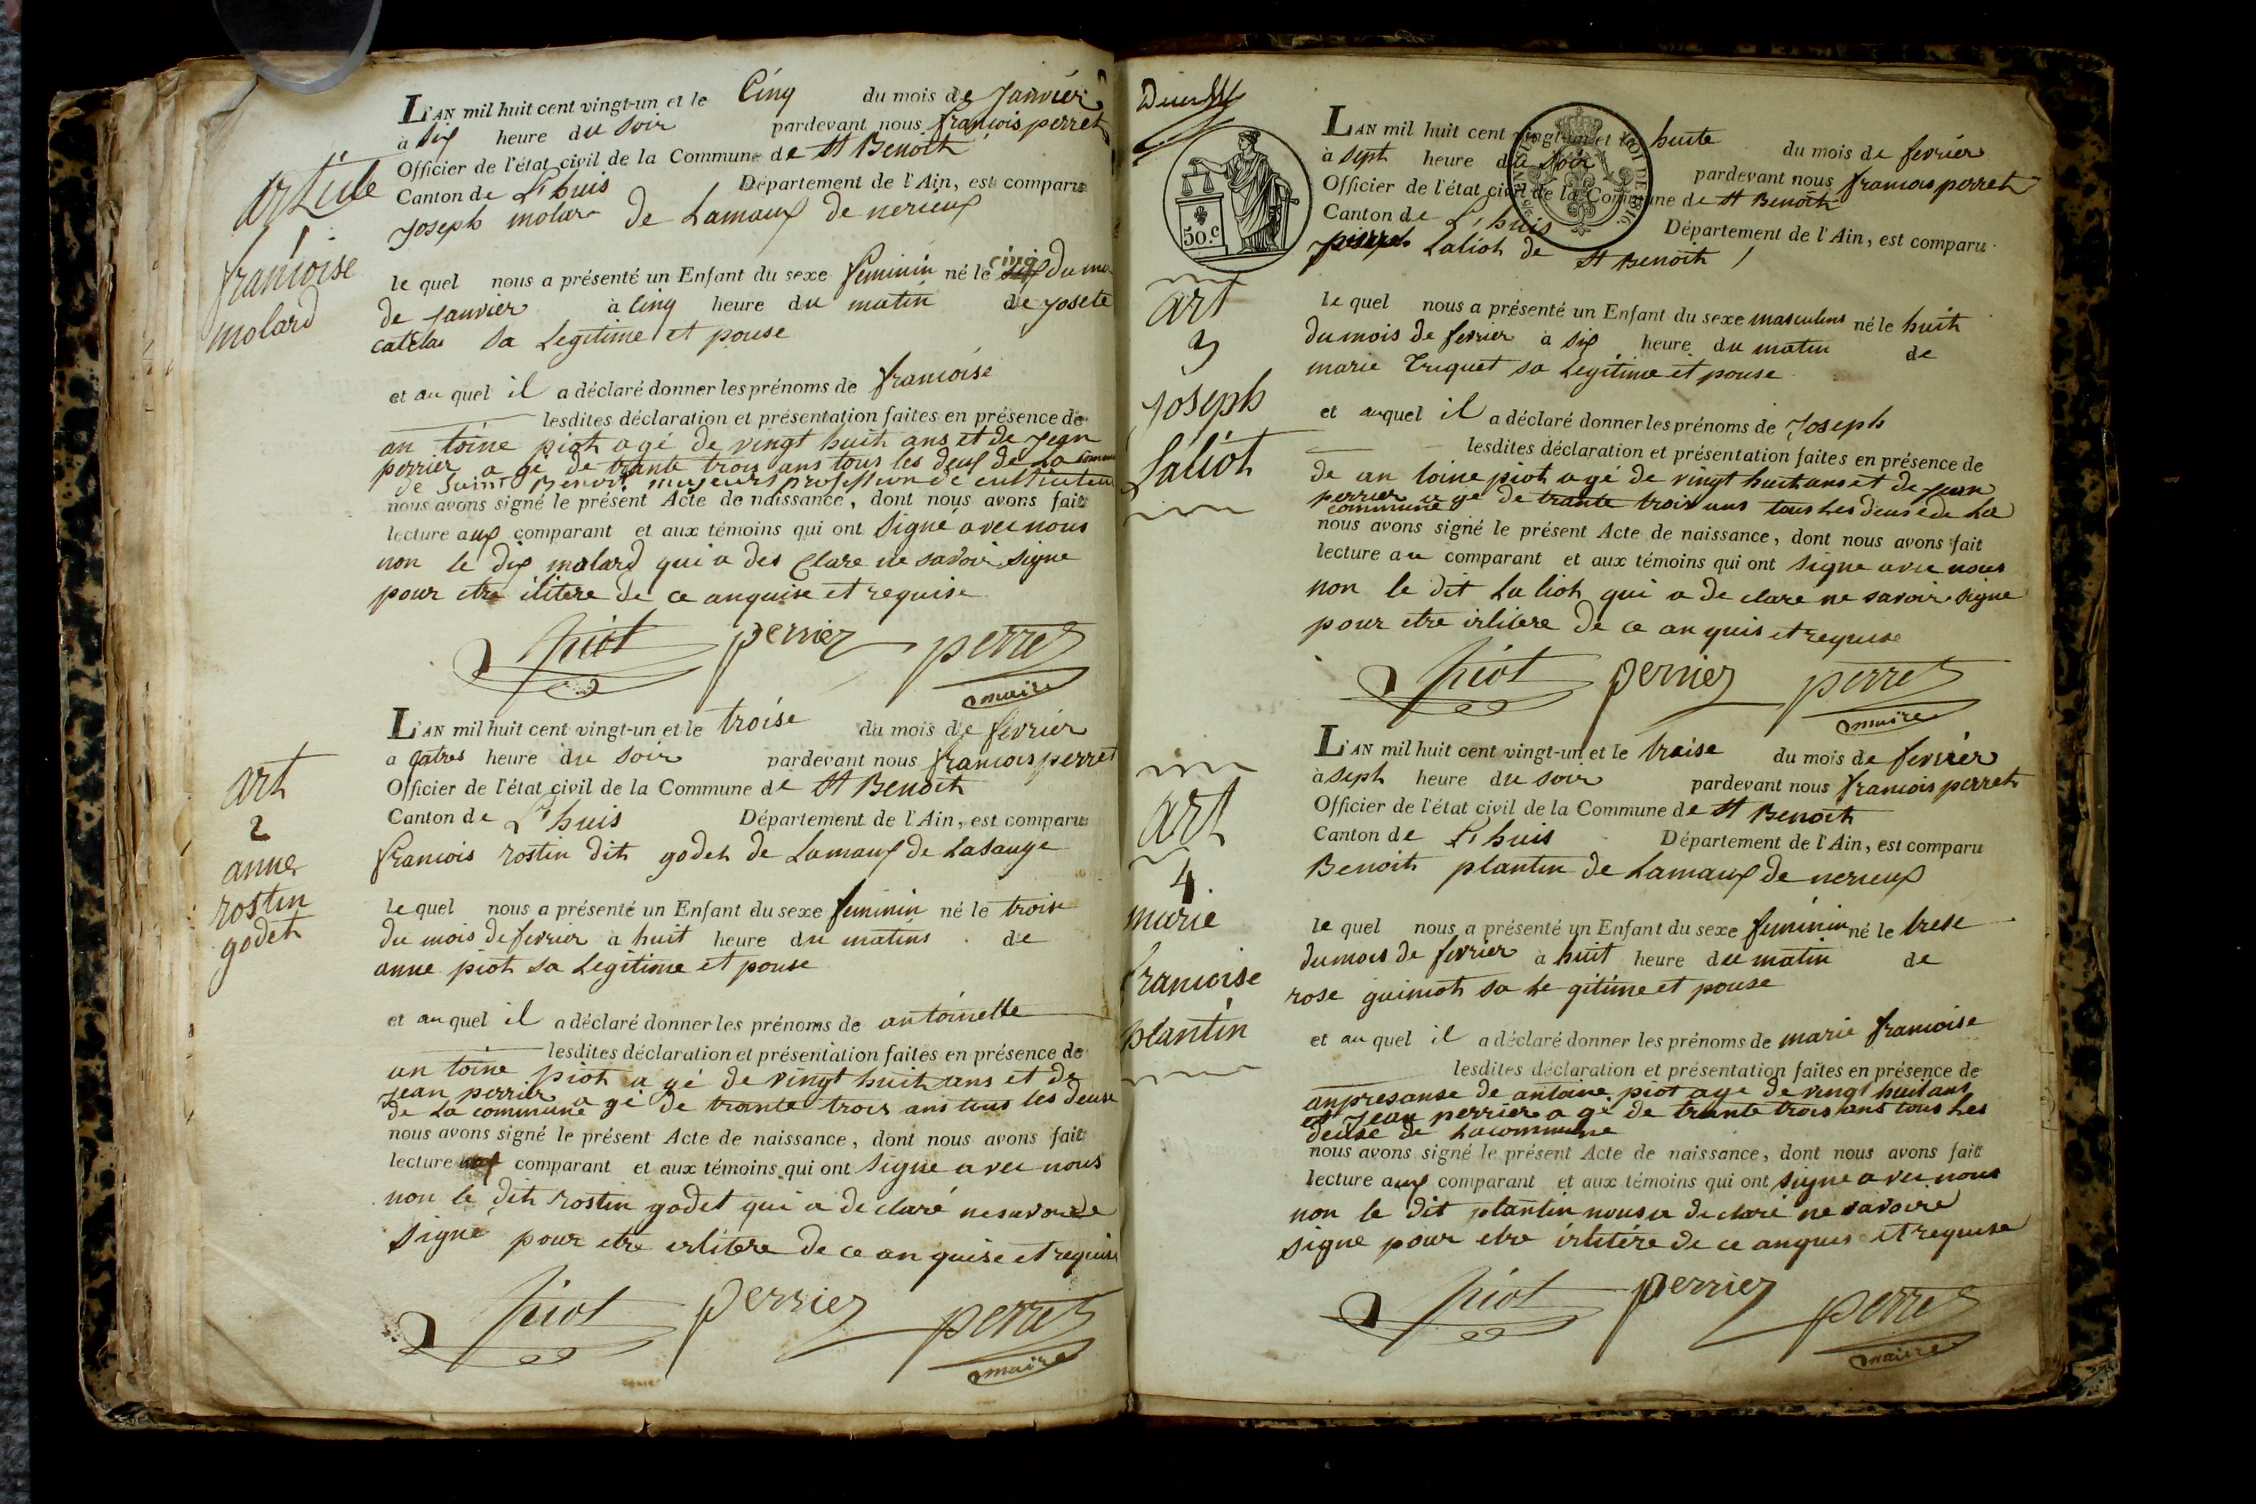 article
françoise
molard
L'AN mil huit cent vingt-un et le Cinq du mois de Janvier
à six heure du soir pardevant nous françois perret
Officier de l'état civil de la Commune de St Benoith
Canton de L'huis Département de l'Ain, est comparu
Joseph molar de Lamaux de nerieux
le quel nous a présenté un Enfant du sexe feminin né le cinq du moi
de janvier à cinq heure du matin de josete
catelas sa Legitime et pouse
et au quel il a déclaré donner les prénoms de francoise
lesdites déclaration et présentation faites en présence de
an toine pioth a gé de vingt huit ans et de Jean
perrier a gé de trante trois ans tous les deux de La commune
de Saint Benoit majeurs profession de cultivateur
nous avons signé le présent Acte de naissance, dont nous avons fait
lecture aux comparant et aux témoins qui ont signé avec nous
non le dix molard qui a des clare ne savoir signe
pour etre ilitere de ce anquise et requise
piot perrier perret
maire
art
2
anne
rostin
godet
L'AN mil huit cent vingt-un et le troise du mois de fevrier
a qatres heure du soir pardevant nous francois perret
Officier de l'état civil de la Commune de St Benoith
Canton de L'huis Département de l'Ain, est comparu
francois rostin dit godet de Lamaux de Lasauge
le quel nous a présenté un Enfant du sexe feminin né le troise
du mois de fevrier a huit heure du matins de
anne piot sa Legitime et pouse
et au quel il a déclaré donner les prénoms de antoinette
lesdites déclaration et présentation faites en présence de
an toine pioth a gé de vingt huit ans et de
jean perrier a gé de trante trois ans tous les deuse
de La commune
nous avons signé le présent Acte de naissance, dont nous avons fait
lecture comparant et aux témoins qui ont signe avec nous
non le dit rostin godet qui a de claré ne savoir de
signe pour etre irlitere de ce an quise et requise
piot perrier perret
maire
Deux
50.c
art
3
joseph
Lalioth
L'AN mil huit cent vingt-un et le huite du mois de fevrier
à sept heure du soir pardevant nous francois perret
Officier de l'état civil de la Commune de St Benoith
Canton de L'huis Département de l'Ain, est comparu
pierre Lalioth de St Benoith
le quel nous a présenté un Enfant du sexe masculins né le huit
du mois de fevrier à six heure du matin de
marie Triquet sa Legitime et pouse
et auquel il a déclaré donner les prénoms de joseph
lesdites déclaration et présentation faites en présence de
de an toine piot agé de vingt huit ans et de jean
perrier a ge de trante trois ans tous Les deuse de La
commune
nous avons signé le présent Acte de naissance, dont nous avons fait
lecture au comparant et aux témoins qui ont signe avec nous
non le dit La lioth qui a de clare ne savoir signe
pour etre irlitere de ce an quis et requise
piot perrier perret
maire
art
4
marie
francoise
plantin
L'AN mil huit cent vingt-un et le traise du mois de fevrier
à sept heure du soir pardevant nous francois perret
Officier de l'état civil de la Commune de St Benoith
Canton de L'huis Département de l'Ain, est comparu
Benoith plantin de Lamaux de nerieux
le quel nous a présenté un Enfant du sexe feminin né le trese
du mois de fevrier à huit heure du matin de
rose guimoth sa Le gitime et pouse
et au quel il a déclaré donner les prénoms de marie francoise
lesdites déclaration et présentation faites en présence de
anpresanse de antoine piot age de vingt huit ans
et jean perrier a ge de trante trois ans tous Les
deuse de La commune
nous avons signé le présent Acte de naissance, dont nous avons fait
lecture aux comparant et aux témoins qui ont signe avec nous
non le dit plantin nous a declaré ne savoire
signe pour etre irlitére de ce anques et requise
piot perrier perret
maire